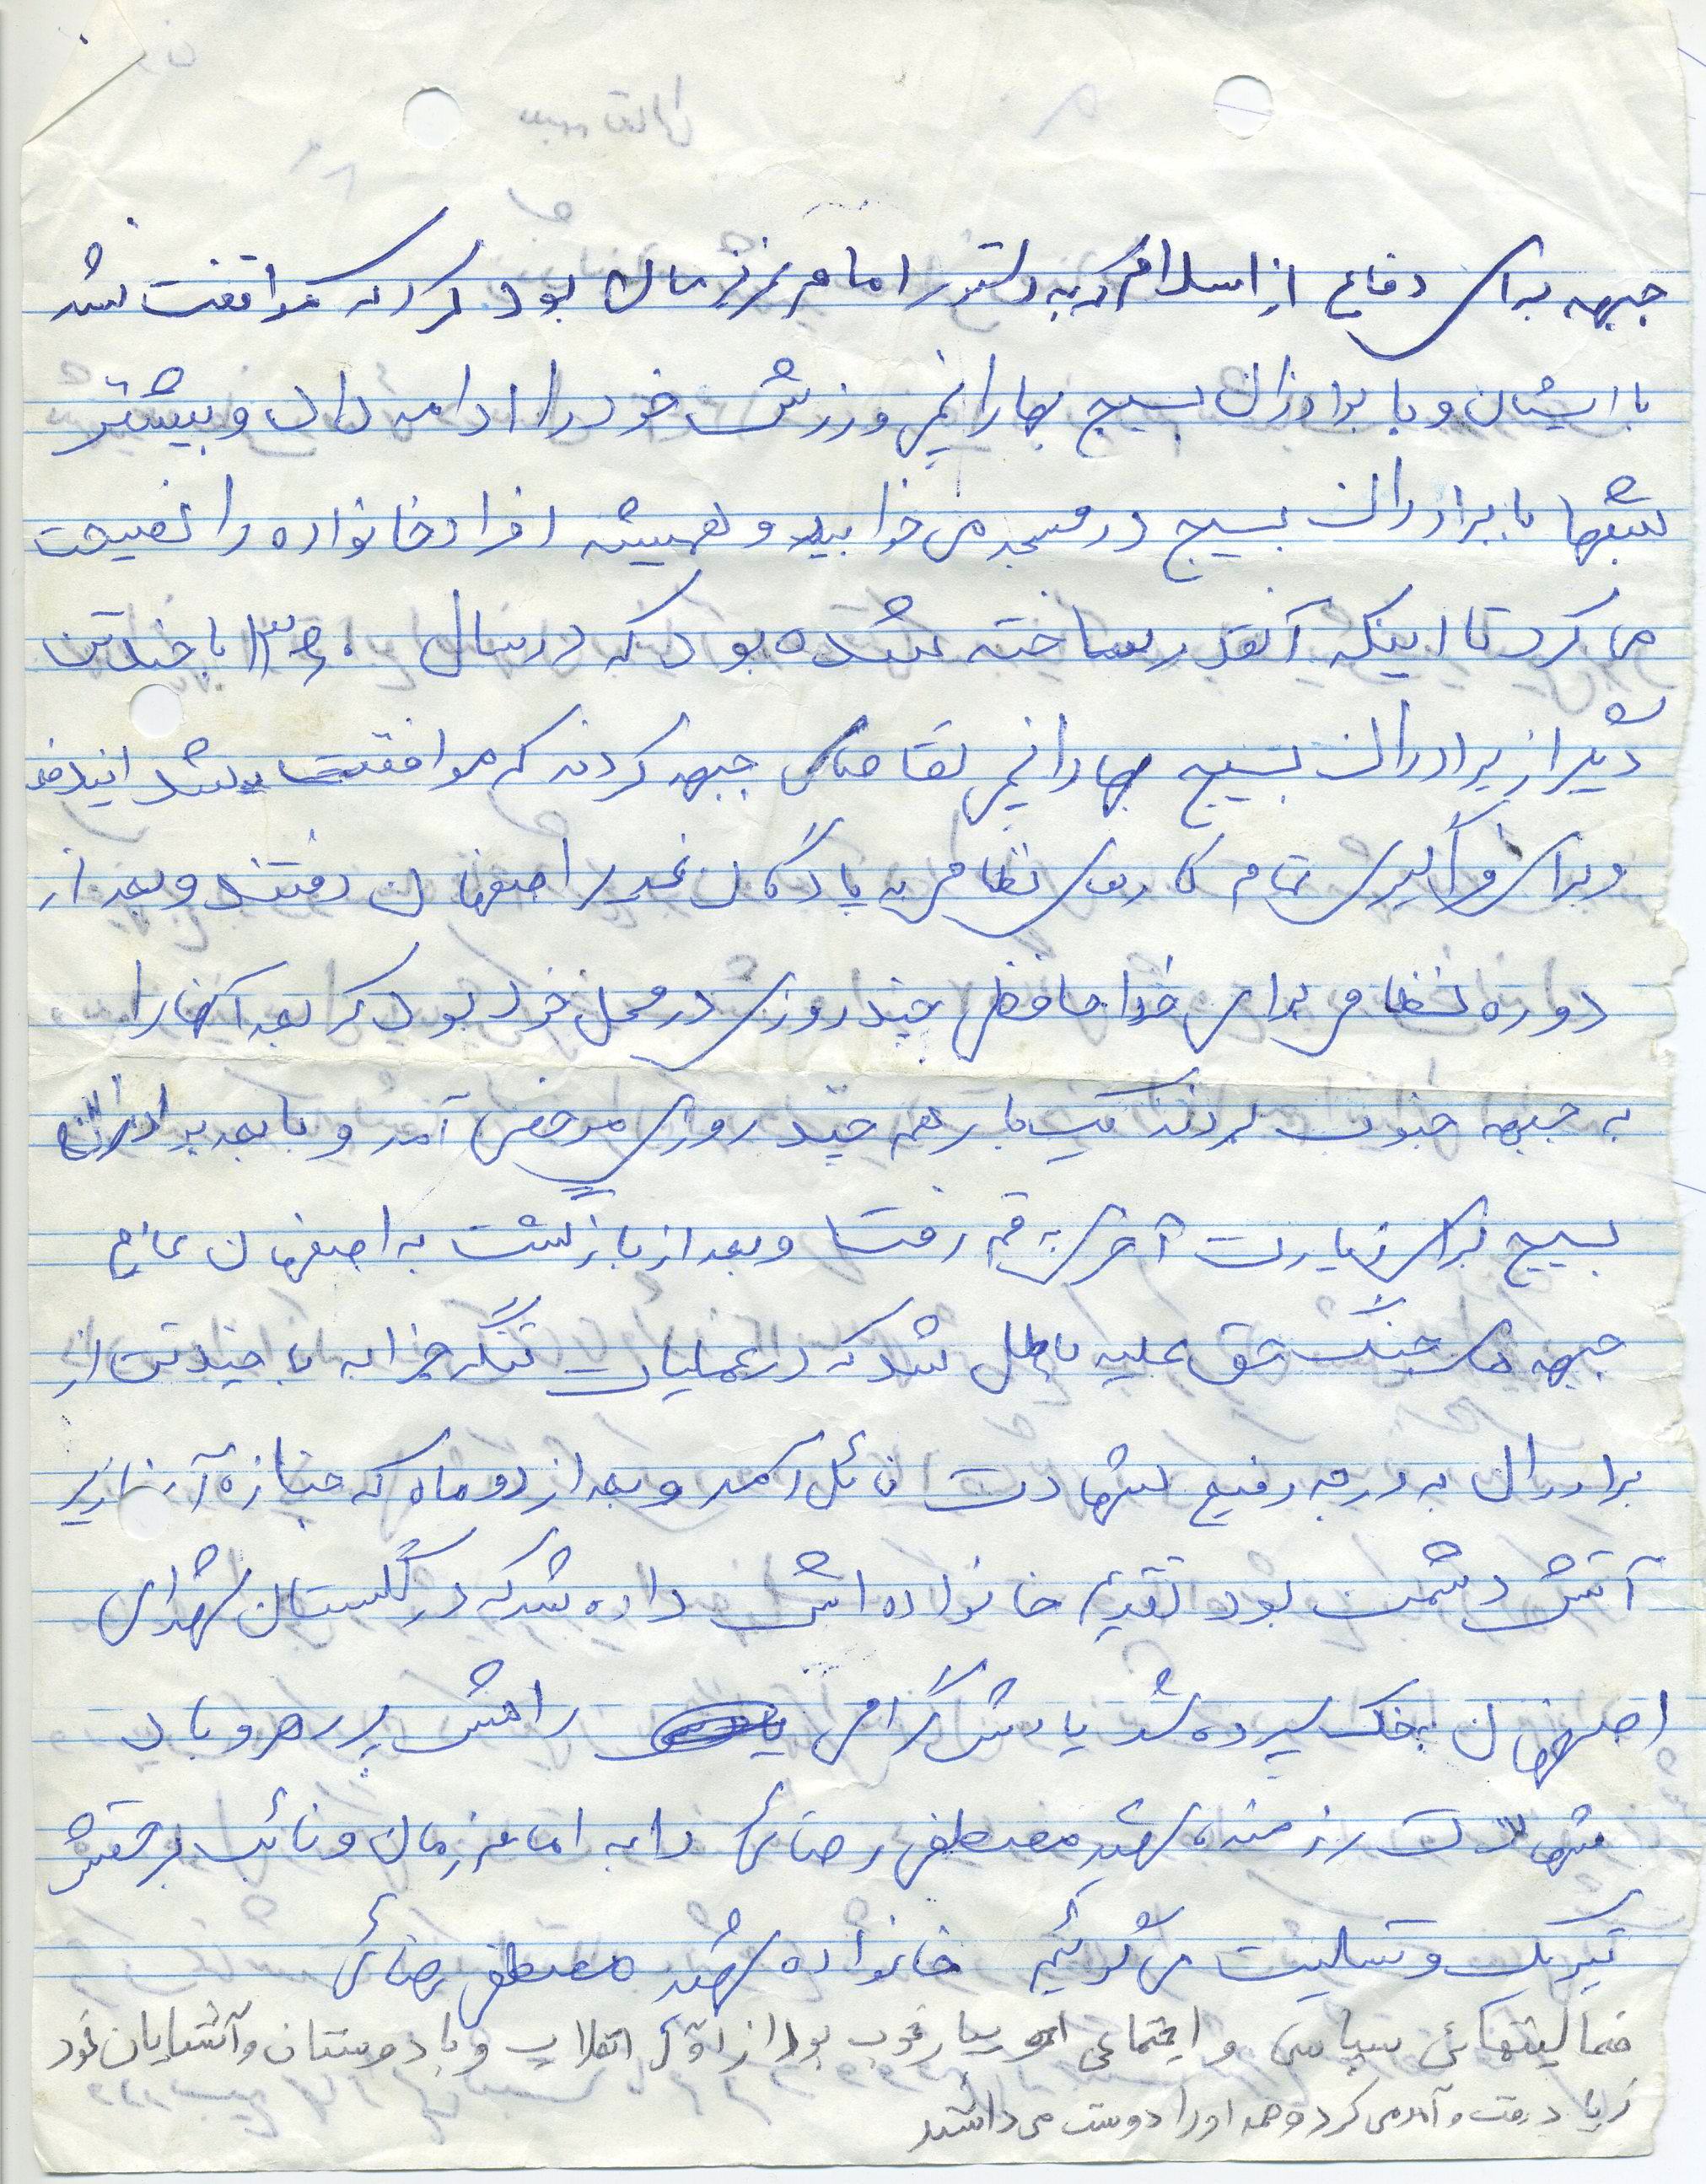 جبهه برای دفاع از اسلام که به دستور امام عزیزمان بود کرد که موافقت نشد
با ایشان و با برادران بسیج بهارانچی ورزش خود را ادامه داد و بیشتر
شبها با برادران بسیج در مسجد می خوابید و همیشه افراد خانواده را نصیحت
می کرد تا اینکه آنقدر ساخته شده بود که در سال ۱۳۶۰ با چند تن
دیگر از برادران بسیج بهارانچی تقاضای جبهه کردند که موافقت شد ایندفعه
و برای فراگیری تمام کارهای نظامی به پادگان غدیر اصفهان رفتند و بعد از
دوره نظامی برای خدا حافظی چند روزی در محل خود بود که بعد آنها را
به جبهه جنوب بردند یک بار هم چند روزی مرخصی آمد و با بعد برادران
بسیج برای زیارت آخری به قم رفت و بعد از بازگشت به اصفهان عازم
جبهه های جنگ حق علیه باطل شد که در عملیات تنگه چزابه با چند تن از
برادران به درجه رفیع شهادت نائل آمد و بعد از دو ماه که جنازه آن زیر
آتش دشمن بود تقدیم خانواده اش داده شد که در گلستان شهدای
اصفهان بخاک سپرده شد یادش گرامی راهش پر رهرو باد
شهادت رزمنده شهید مصطفی رضائی را به امام زمان و نائب بر حقش
تبریک و تسلیت می گوئیم خانواده شهید مصطفی رضائی
فعالیتهائی سیاسی و اجتماعی او بسیار خوب بود از اوّل انقلاب و با دوستان و آشنایان خود
زیاد رفت و آمد می کرد و همه او را دوست می داشتند